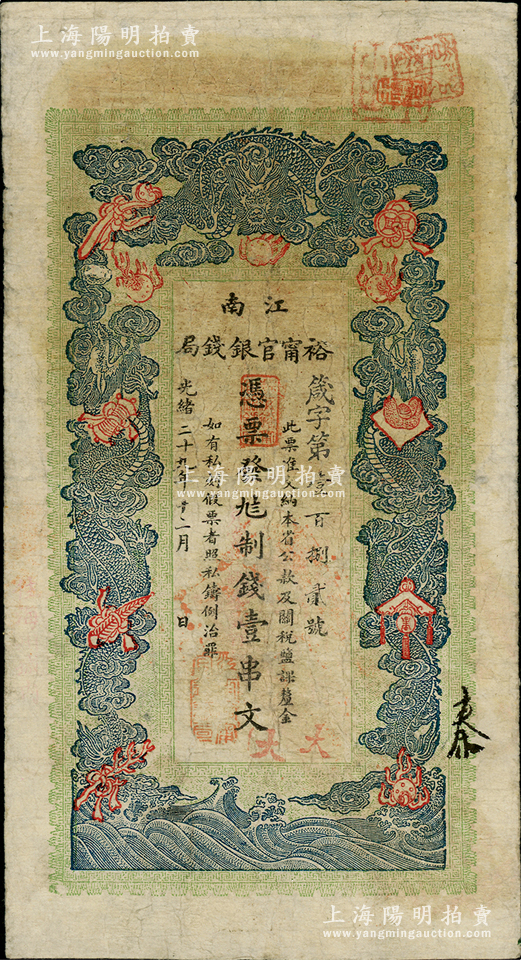 上海陽明拍賣
www.yangmingauction.com
江南
裕甯官銀錢局
箴字第 百捌貳號
此票准交納本省公款及關稅鹽課釐金
憑票發足制錢壹串文
如有私刻假票者照私鑄例治罪
光緒二十九年十二月 日
上海陽明拍賣
www.yangmingauction.com
上海陽明拍賣
www.yangmingauction.com